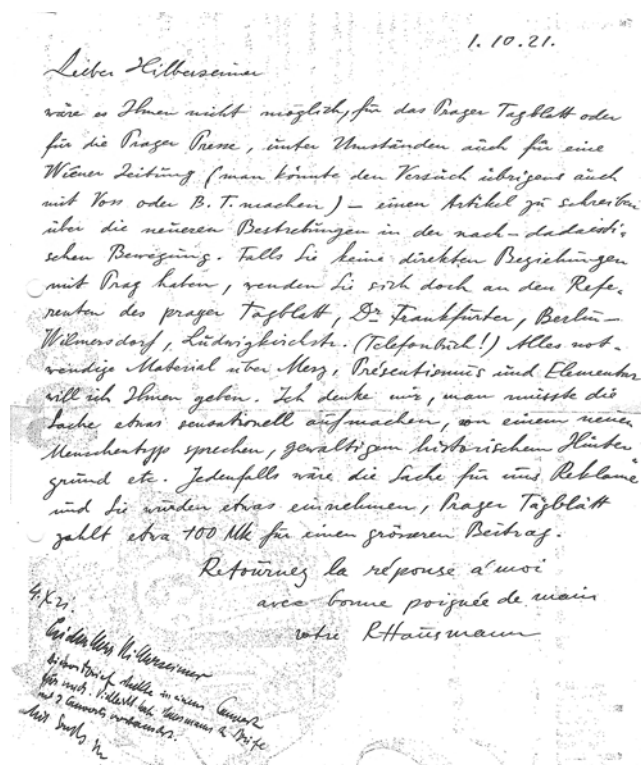 1.10.21.
Lieber Hilberseimer
wäre es Ihnen nicht möglich, für das Prager Tagblatt oder
für die Prager Presse, unter Umständen auch für eine
Wiener Zeitung (man könnte den Versuch übrigens auch
mit Voss oder B.T. machen) – einen Artikel zu schreiben
über die neueren Bestrebungen in der nach-dadaisti-
schen Bewegung. Falls Sie keine direkten Beziehungen
mit Prag haben, wenden Sie sich doch an den Refe-
renten des prager Tagblatt, Dr. Frankfurter, Berlin–
Wilmersdorf, Ludwigkirchstr. (Telefonbuch!) Alles not-
wendige Material über Merz, Présentismus und Elementar
will ich Ihnen geben. Ich denke mir, man müsste die
Sache etwas sensationell aufmachen, von einem neuen
Menschentyp sprechen, gewaltigem historischem Hinter-
grund etc. Jedenfalls wäre die Sache für uns Reklame
und Sie würden etwas einnehmen, Prager Tagblatt
zahlt etwa 100 Mk für einen grösseren Beitrag.
Retournez la réponse à moi
avec bonne poignée de main
votre RHausmann
4.X.21.
Lieber Herr Hilberseimer
in einem Couvert
für mich. Vielleicht hat Hausmann 2 Briefe
mit 2 Couverts